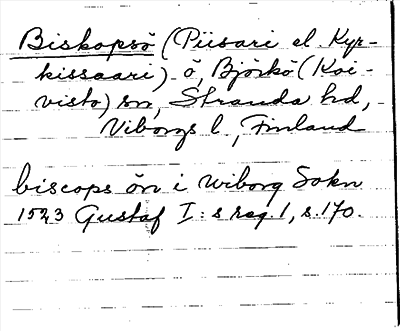 Biskopsö (Piisari el. Kyr-
kissaari) ö, Björkö (Koi-
visto) sn, Stranda hd,
Viborgs l., Finland
biscops ön i wiborg Sokn
1523 Gustaf I:s reg. 1, s. 170.